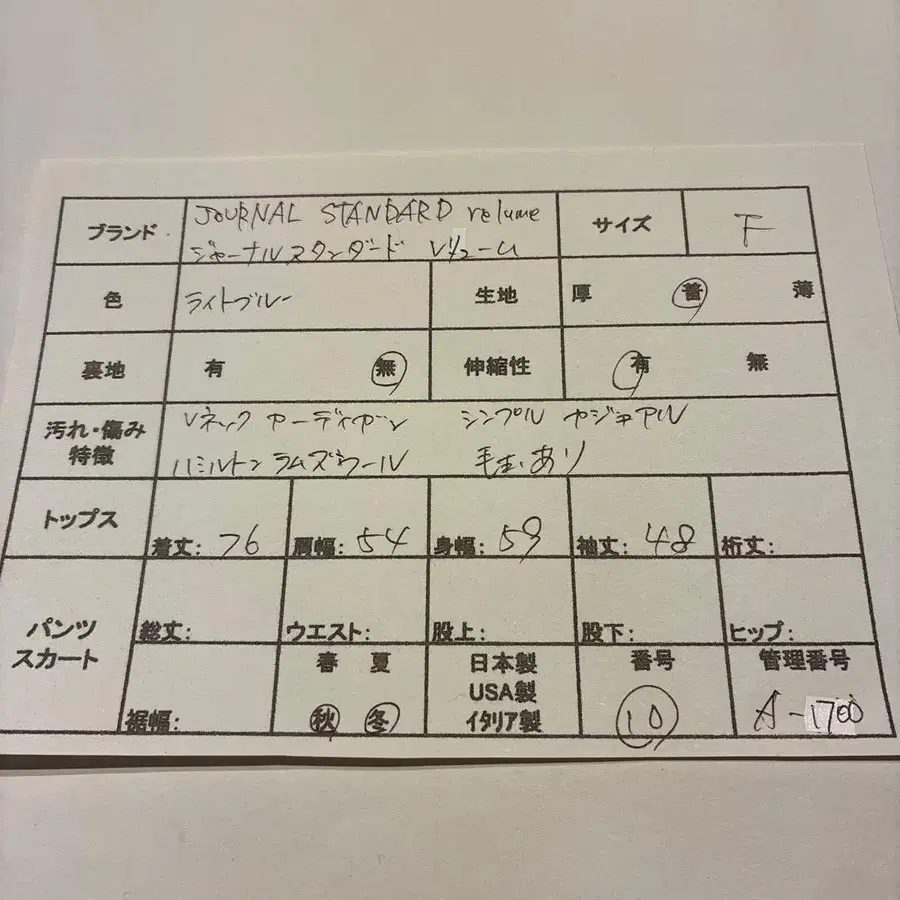 ブランド JOURNAL STANDARD relume サイズ F
ジャーナルスタンダード レリューム
色 ライトブルー 生地 厚 普 薄
裏地 有 無 伸縮性 有 無
汚れ・傷み Vネック カーディガン シンプル カジュアル
特徴 ハミルトン ラムズウール 毛玉あり
トップス 着丈: 76 肩幅: 54 身幅: 59 袖丈: 48 裄丈:
パンツ
スカート 総丈: ウエスト: 股上: 股下: ヒップ:
春 夏 日本製 番号 管理番号
USA製
裾幅: 秋 冬 イタリア製 10 A-1700